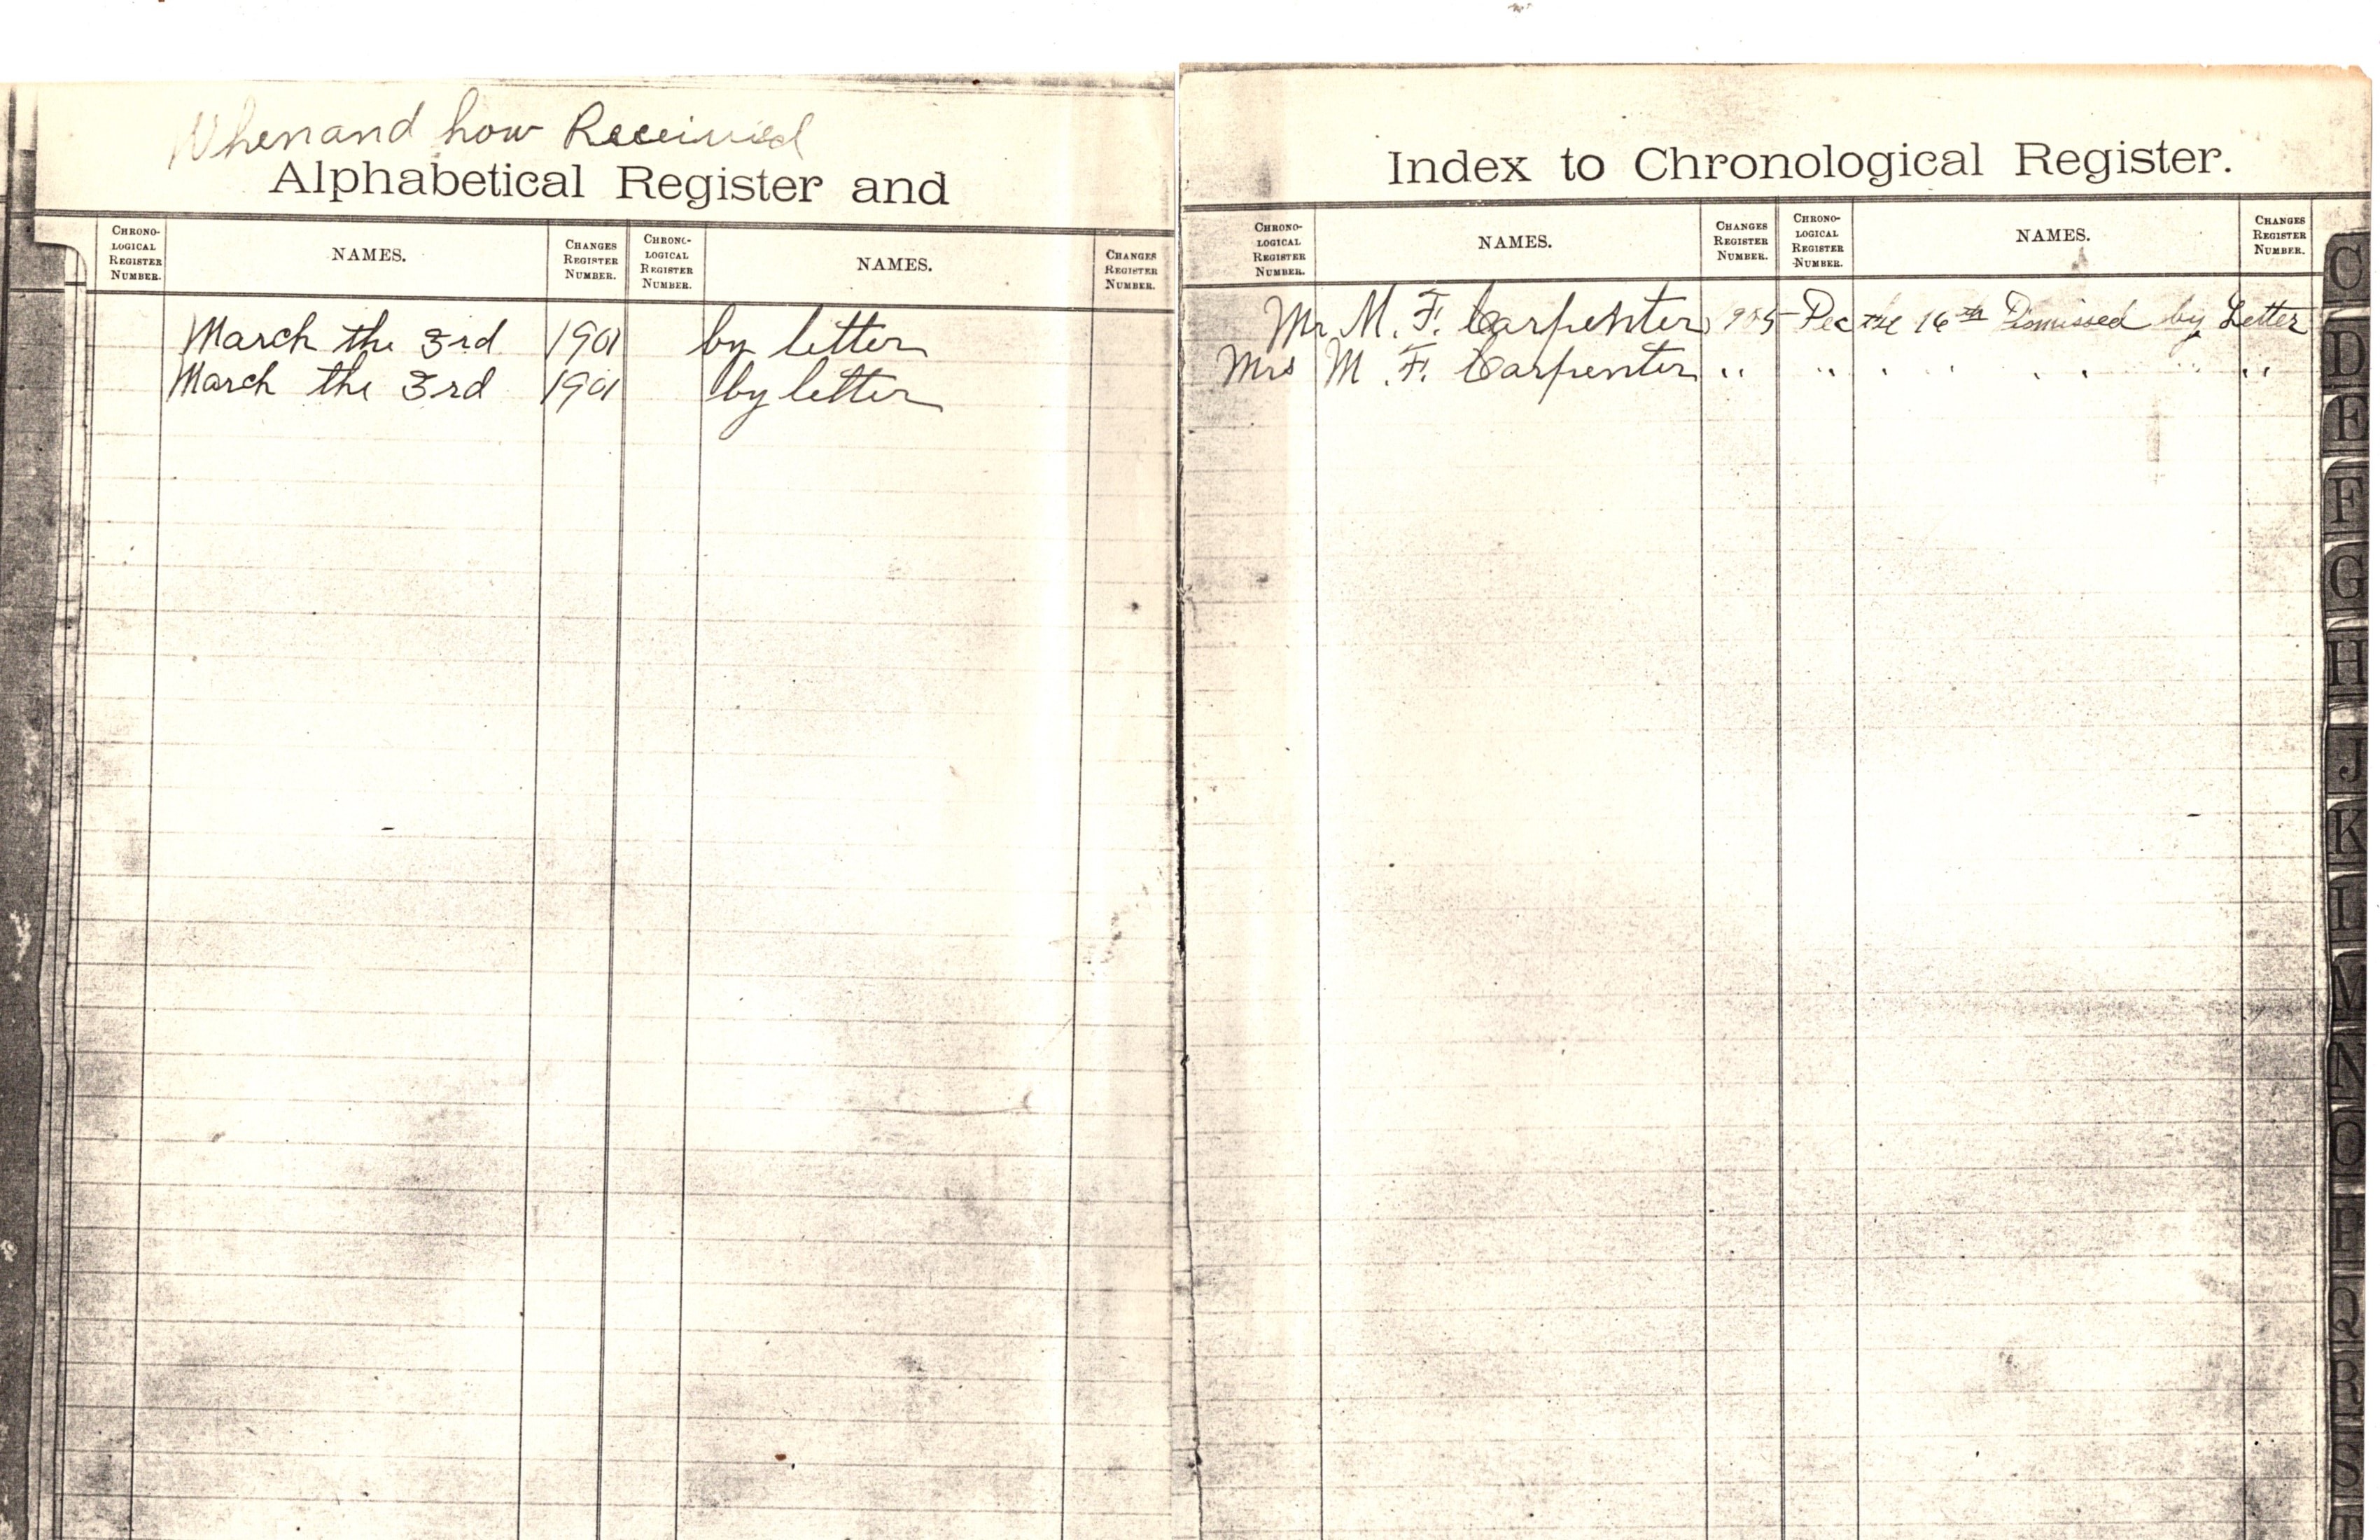 When and how Received
Alphabetical Register and
CHRONO-LOGICAL REGISTER NUMBER. NAMES. CHANGES REGISTER NUMBER. CHRONO-LOGICAL REGISTER NUMBER. NAMES. CHANGES REGISTER NUMBER.
March the 3rd 1901 by letter
March the 3rd 1901 by letter
Index to Chronological Register.
CHRONO-LOGICAL REGISTER NUMBER. NAMES. CHANGES REGISTER NUMBER. CHRONO-LOGICAL REGISTER NUMBER. NAMES. CHANGES REGISTER NUMBER.
Mr M. F. Carpenter Dec the 16th Dismissed by Letter
Mrs M. F. Carpenter " " " " " " "
C
D
E
F
G
H
J
K
L
M
N
O
P
Q
R
S